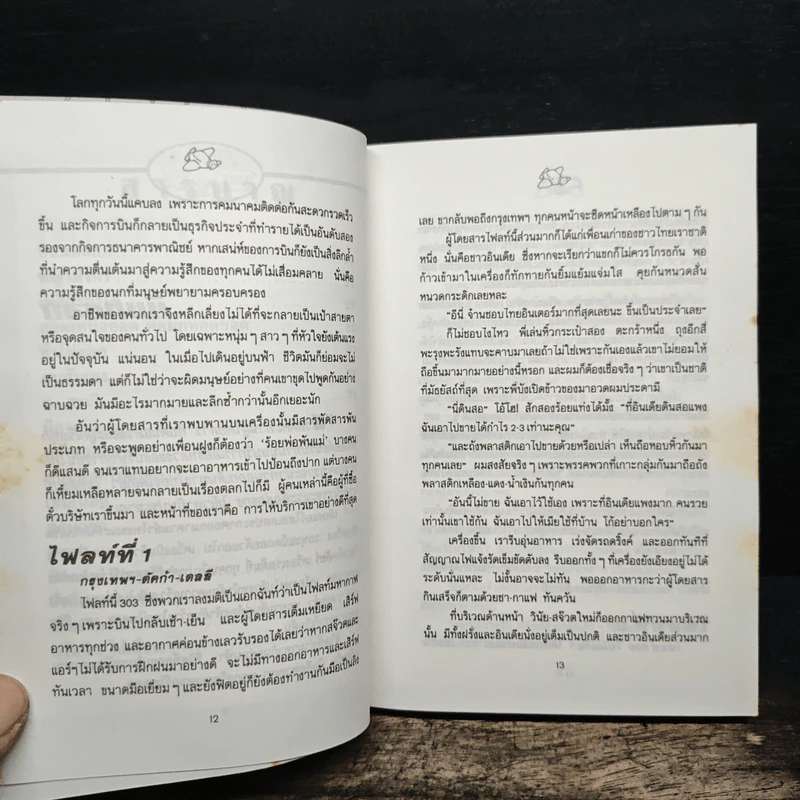 โลกทุกวันนี้แคบลง เพราะการคมนาคมติดต่อกันสะดวกรวดเร็ว
ขึ้น และกิจการบินก็กลายเป็นธุรกิจประจำที่ทำรายได้เป็นอันดับสอง
รองจากกิจการธนาคารพาณิชย์ หากเสน่ห์ของการบินก็ยังเป็นสิ่งลึกล้ำ
ที่นำความตื่นเต้นมาสู่ความรู้สึกของทุกคนได้ไม่เสื่อมคลาย นั่นคือ
ความรู้สึกของนกที่มนุษย์พยายามครอบครอง
อาชีพของพวกเราจึงหลีกเลี่ยงไม่ได้ที่จะกลายเป็นเป้าสายตา
หรือจุดสนใจของคนทั่วไป โดยเฉพาะหนุ่มๆ สาวๆ ที่หัวใจยังเต้นแรง
อยู่ในปัจจุบัน แน่นอน ในเมื่อไปเดินอยู่บนฟ้า ชีวิตมันก็ย่อมจะไม่
เป็นธรรมดา แต่ก็ไม่ใช่ว่าจะผิดมนุษย์อย่างที่คนเขาขุดไปพูดกันอย่าง
ฉาบฉวย มันมีอะไรมากมายและลึกซ้ำกว่านั้นอีกเยอะนัก
อันว่าผู้โดยสารที่เราพบพานบนเครื่องนั้นมีสารพัดสารพัน
ประเภท หรือจะพูดอย่างเพื่อนฝูงก็ต้องว่า 'ร้อยพ่อพันแม่' บางคน
ก็ดีแสนดี จนเราแทบอยากจะเอาอาหารเข้าไปป้อนถึงปาก แต่บางคน
ก็เหี้ยมเหลือหลายจนกลายเป็นเรื่องตลกไปก็มี ผู้คนเหล่านี้คือผู้ที่ซื้อ
ตั๋วบริษัทเราขึ้นมา และหน้าที่ของเราคือ การให้บริการเขาอย่างดีที่สุด
ไฟลท์ที่ 1
กรุงเทพฯ-ดัคก้า-เดลลี
ไฟลท์นี้ 303 ซึ่งพวกเราลงมติเป็นเอกฉันท์ว่าเป็นไฟลท์มหากาฬ
จริงๆ เพราะบินไปกลับเช้า-เย็น และผู้โดยสารเต็มเหยียด เสิร์ฟ
อาหารทุกช่วง และอากาศค่อนข้างเลวรับรองได้เลยว่าหากสจ๊วตและ
แอร์ฯ ไม่ได้รับการฝึกฝนมาอย่างดี จะไม่มีทางออกอาหารและเสิร์ฟ
ทันเวลา ขนาดมือเยี่ยมๆ และยังฟิตอยู่ก็ยังต้องทำงานกันมือเป็นลิง
12
เลย ขากลับพอถึงกรุงเทพฯ ทุกคนหน้าจะซีดหน้าเหลืองไปตามๆ กัน
ผู้โดยสารไฟลท์นี้ส่วนมากก็ได้แก่เพื่อนเก่าของชาวไทยเราชาติ
หนึ่ง นั่นคือชาวอินเดีย ซึ่งหากจะเรียกว่าแขกก็ไม่ควรโกรธกัน พอ
ก้าวเข้ามาในเครื่องก็ทักทายกันยิ้มแย้มแจ่มใส คุยกันหนวดสั่น
หนวดกระดิกเลยหละ
"อีนี่ จำนชอบไทยอินเตอร์มากที่สุดเลยนะ ขึ้นเป็นประจำเลย"
ก็ไม่ชอบไงไหว พี่เล่นหิ้วกระเป๋าสอง ตะกร้าหนึ่ง ถุงอีกสี่
พะรุงพะรังแทบจะคาบมาเลยถ้าไม่ใช่เพราะกันเองแล้วเขาไม่ยอมให้
ถือขึ้นมากมายอย่างนี้หรอก และผมก็ต้องเชื่อจริงๆ ว่าเขาเป็นชาติ
ที่มัธยัสถ์ที่สุด เพราะพี่บังเปิดข้าวของมาอวดผมประดามี
"นี่ดินสอ" โอ้โฮ! สักสองร้อยแท่งได้มั้ง "ที่อินเดียดินสอแพง
ฉันเอาไปขายได้กำไร 2-3 เท่านะคุณ"
"และถังพลาสติกเอาไปขายด้วยหรือเปล่า เห็นถือหอบหิ้วกันมา
ทุกคนเลย" ผมสงสัยจริงๆ เพราะพรรคพวกที่เกาะกลุ่มกันมาถือถัง
พลาสติกเหลือง-แดง-น้ำเงินกันทุกคน
"อันนี้ไม่ขาย ฉันเอาไว้ใช้เอง เพราะที่อินเดียแพงมาก คนรวย
เท่านั้นเขาใช้กัน ฉันเอาไปให้เมียใช้ที่บ้าน โก้อย่าบอกใคร"
เครื่องขึ้น เรารีบอุ่นอาหาร เร่งจัดรถดริ๊งค์ และออกทันทีที่
สัญญาณไฟแจ้งรัดเข็มขัดดับลง รีบออกทั้งๆ ที่เครื่องยังเอียงอยู่ไม่ได้
ระดับนั่นแหละ ไม่งั้นอาจจะไม่ทัน พอออกอาหารกะว่าผู้โดยสาร
กินเสร็จก็ตามด้วยชา-กาแฟ ทันควัน
ที่บริเวณด้านหน้า วินัย-สจ๊วตใหม่ก็ออกกาแฟทวนมาบริเวณ
นั้น มีทั้งฝรั่งและอินเดียนั่งอยู่เต็มเป็นปกติ และชาวอินเดียส่วนมาก
13